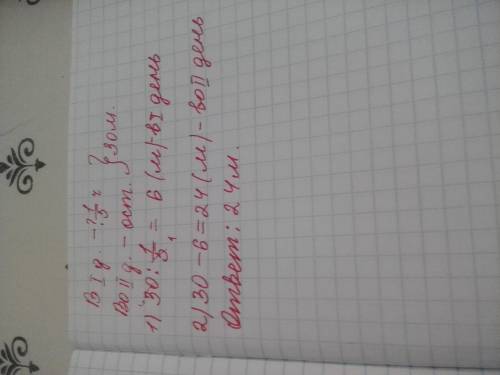 В I д. – ? 1/5 ч
Во II д. – ост. } 30 м.
1) 30 : 1/5 = 6 (м) – в I день
2) 30 – 6 = 24 (м) – во II день
Ответ: 24 м.